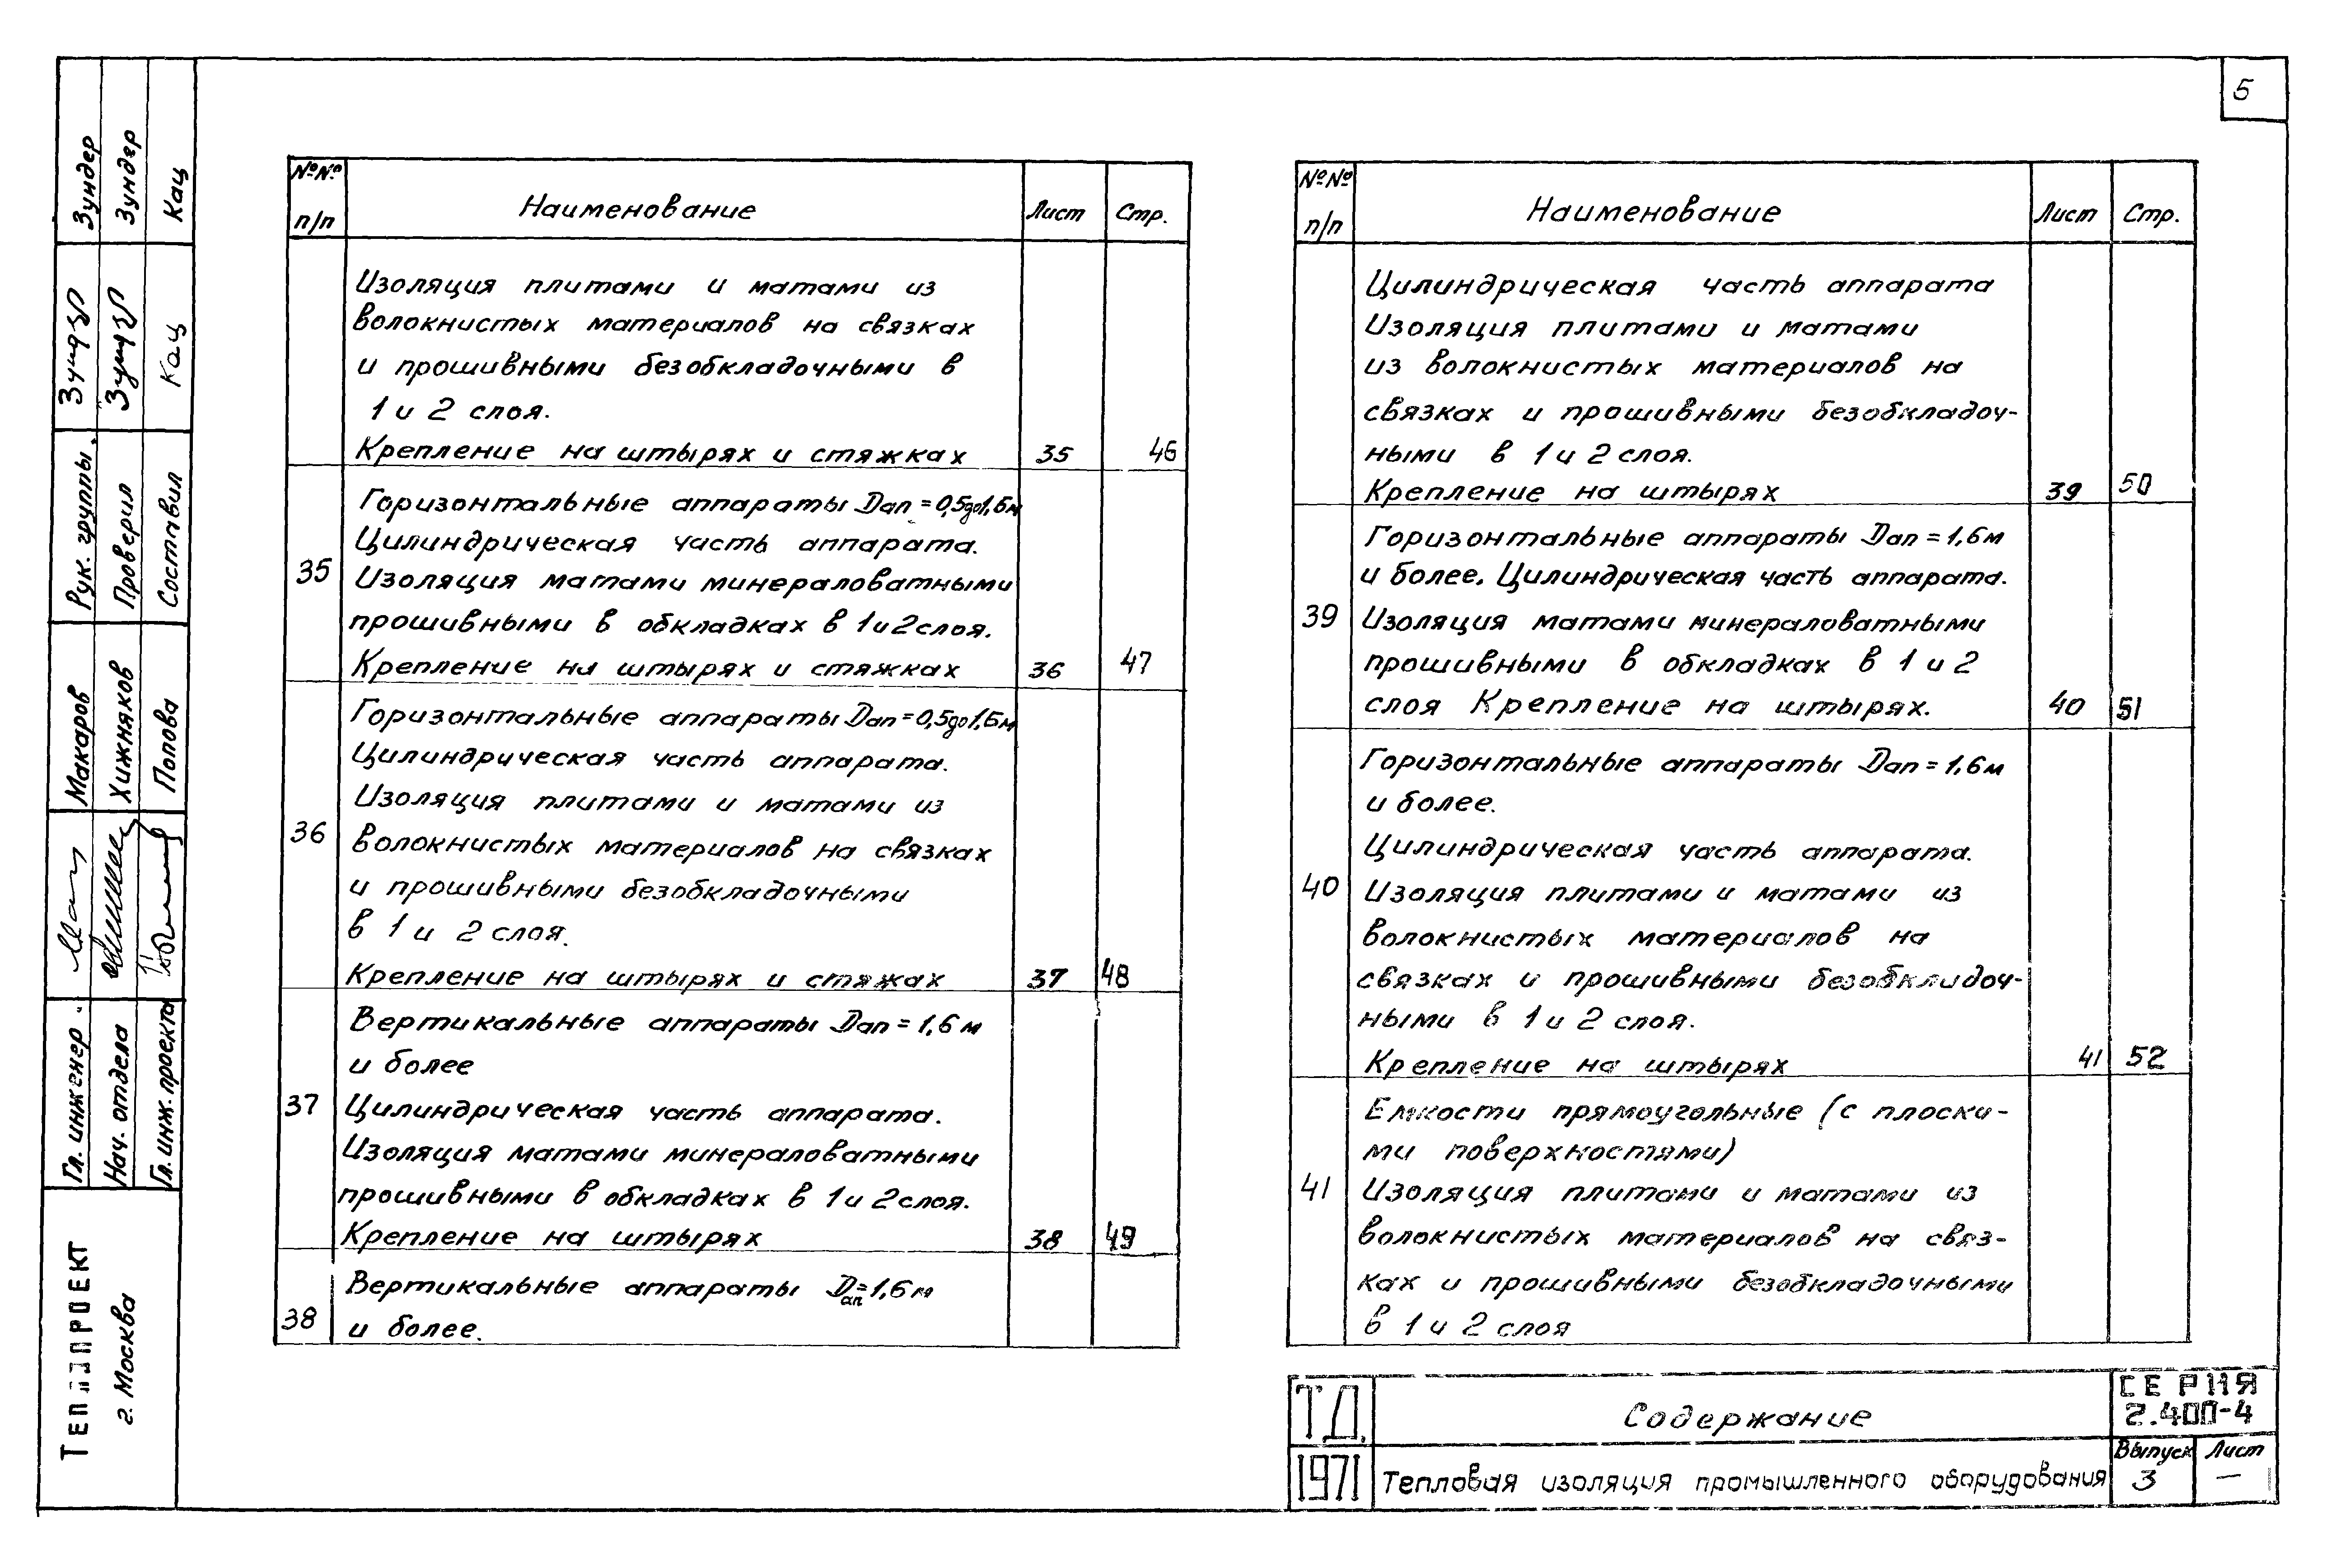 5
№№ п/п Наименование Лист Стр.
Изоляция плитами и матами из
волокнистых материалов на связках
и прошивными безобкладочными в
1 и 2 слоя.
Крепление на штырях и стяжках 35 46
Горизонтальные аппараты Dап = 0,5до1,6м
Цилиндрическая часть аппарата.
35 Изоляция матами минераловатными
прошивными в обкладках в 1и2слоя.
Крепление на штырях и стяжках 36 47
Горизонтальные аппараты Dап = 0,5до1,6м
Цилиндрическая часть аппарата.
Изоляция плитами и матами из
36 волокнистых материалов на связках
и прошивными безобкладочными
в 1 и 2 слоя.
Крепление на штырях и стяжах 37 48
Вертикальные аппараты Dап = 1,6м
и более
37 Цилиндрическая часть аппарата.
Изоляция матами минераловатными
прошивными в обкладках в 1 и 2слоя.
Крепление на штырях 38 49
Вертикальные аппараты Dап=1,6м
38 и более.
№№ п/п Наименование Лист Стр.
Цилиндрическая часть аппарата
Изоляция плитами и матами
из волокнистых материалов на
связках и прошивными безобкладоч-
ными в 1 и 2 слоя.
Крепление на штырях 39 50
Горизонтальные аппараты Dап = 1,6м
и более. Цилиндрическая часть аппарата.
39 Изоляция матами минераловатными
прошивными в обкладках в 1 и 2
слоя Крепление на штырях. 40 51
Горизонтальные аппараты Dап = 1,6м
и более.
Цилиндрическая часть аппарата.
40 Изоляция плитами и матами из
волокнистых материалов на
связках и прошивными безобкладоч-
ными в 1 и 2 слоя.
Крепление на штырях 41 52
Емкости прямоугольные (с плоски-
ми поверхностями)
41 Изоляция плитами и матами из
волокнистых материалов на связ-
ках и прошивными безобкладочными
в 1 и 2 слоя
ТД Содержание СЕРИЯ
2.400-4
1971 Тепловая изоляция промышленного оборудования Выпуск 3 Лист —
Рук. группы Зундер Зундер
Проверил Зундер Зундер
Составил Кац Кац
Гл. инженер Макаров
Нач. отдела Хижняков
Гл. инж. проекта Попова
ТЕПЛОПРОЕКТ
г. Москва